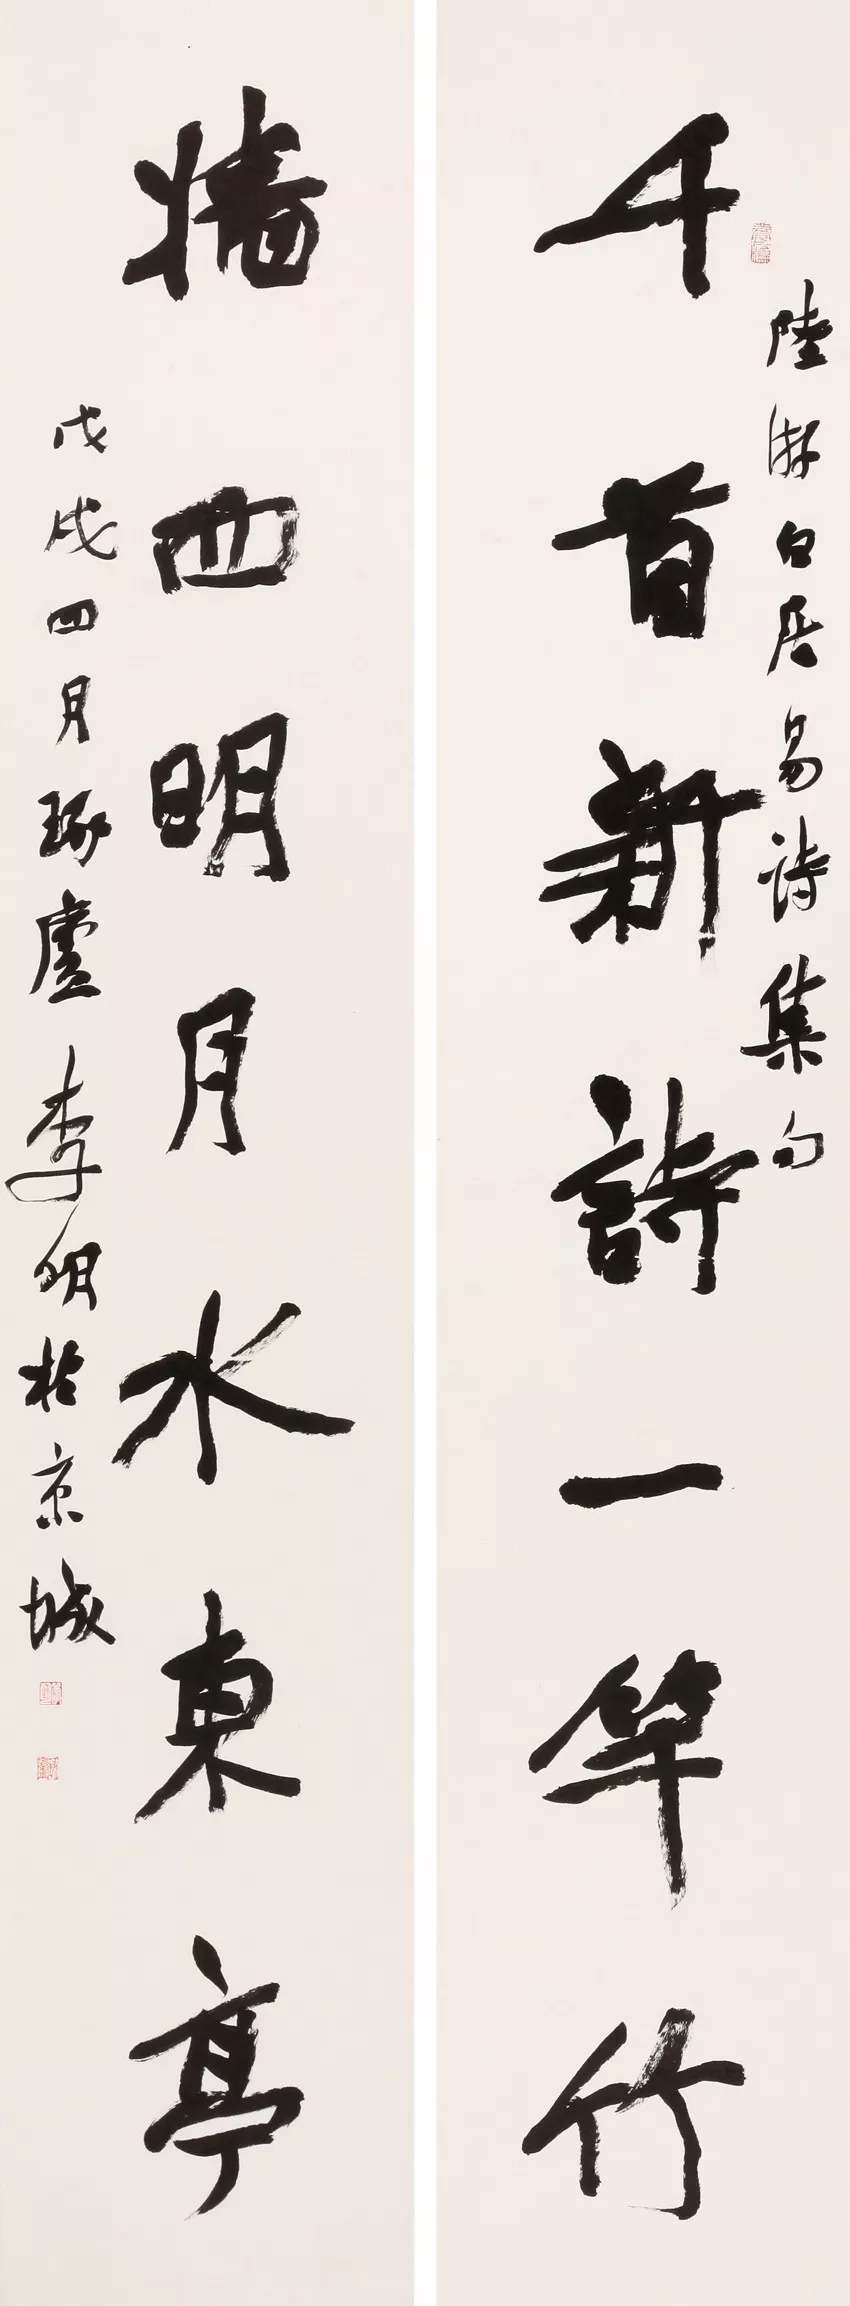 陸游白居易詩集句
千首新詩一竿竹
牆西明月水東亭
戊戌四月琢廬李明於京城